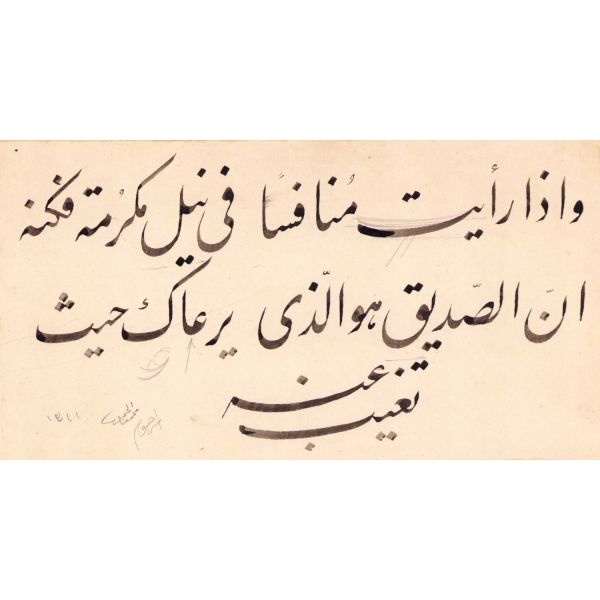 واذا رأيت مُنافسًا في نيل مكرمُة فكنه
انّ الصّديق هو الّذى يرعاك حيث
تغيب عنه
١٣١١